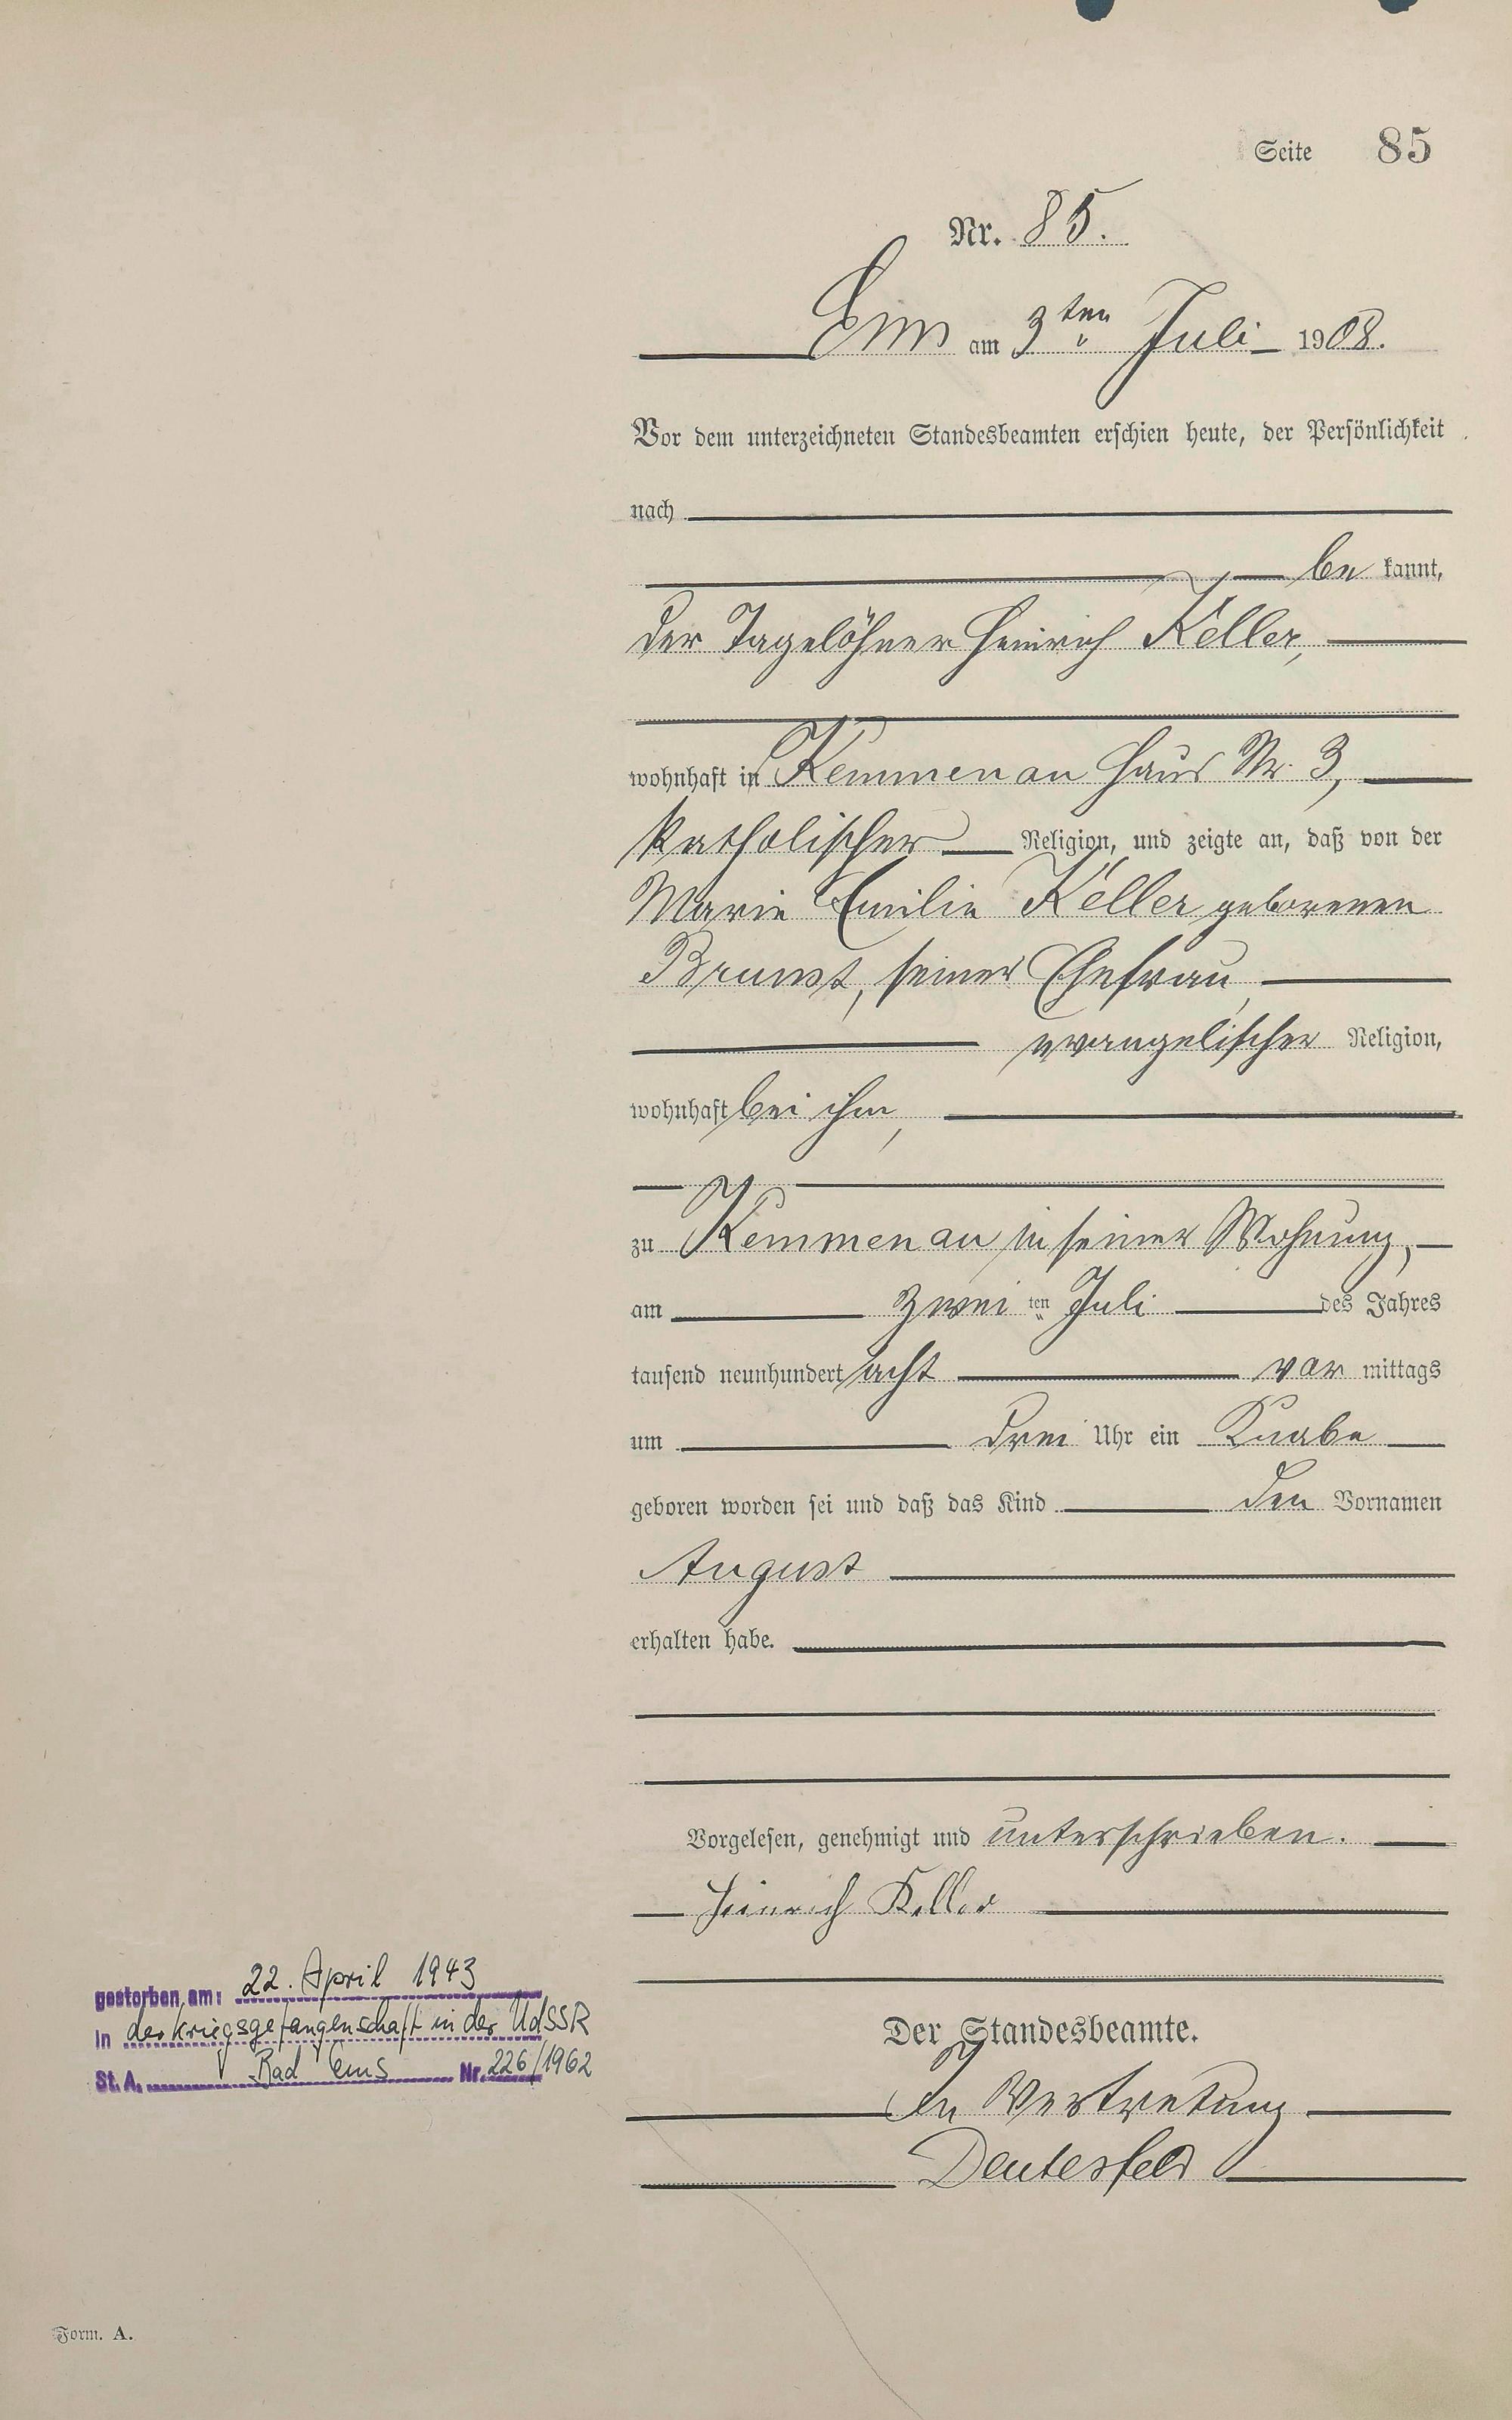 Seite 85
Nr. 85.
Ems am 3ten Juli 1908.
Vor dem unterzeichneten Standesbeamten erschien heute, der Persönlichkeit
nach
be kannt,
der Tagelöhner Heinrich Keller,
wohnhaft in Kemmenau Haus Nr. 3,
katholischer Religion, und zeigte an, daß von der
Marie Emilie Keller geborenen
Brunst, seiner Ehefrau,
evangelischer Religion,
wohnhaft bei ihm,
zu Kemmenau in seiner Wohnung,
am zwei ten Juli des Jahres
tausend neunhundert acht vor mittags
um drei Uhr ein Knabe
geboren worden sei und daß das Kind den Vornamen
August
erhalten habe.
Vorgelesen, genehmigt und unterschrieben.
Heinrich Keller
Der Standesbeamte.
In Vertretung
Deutesfeld
gestorben am: 22. April 1943
in der Kriegsgefangenschaft in der UdSSR
St. A. Bad Ems Nr. 226/1962
Form. A.